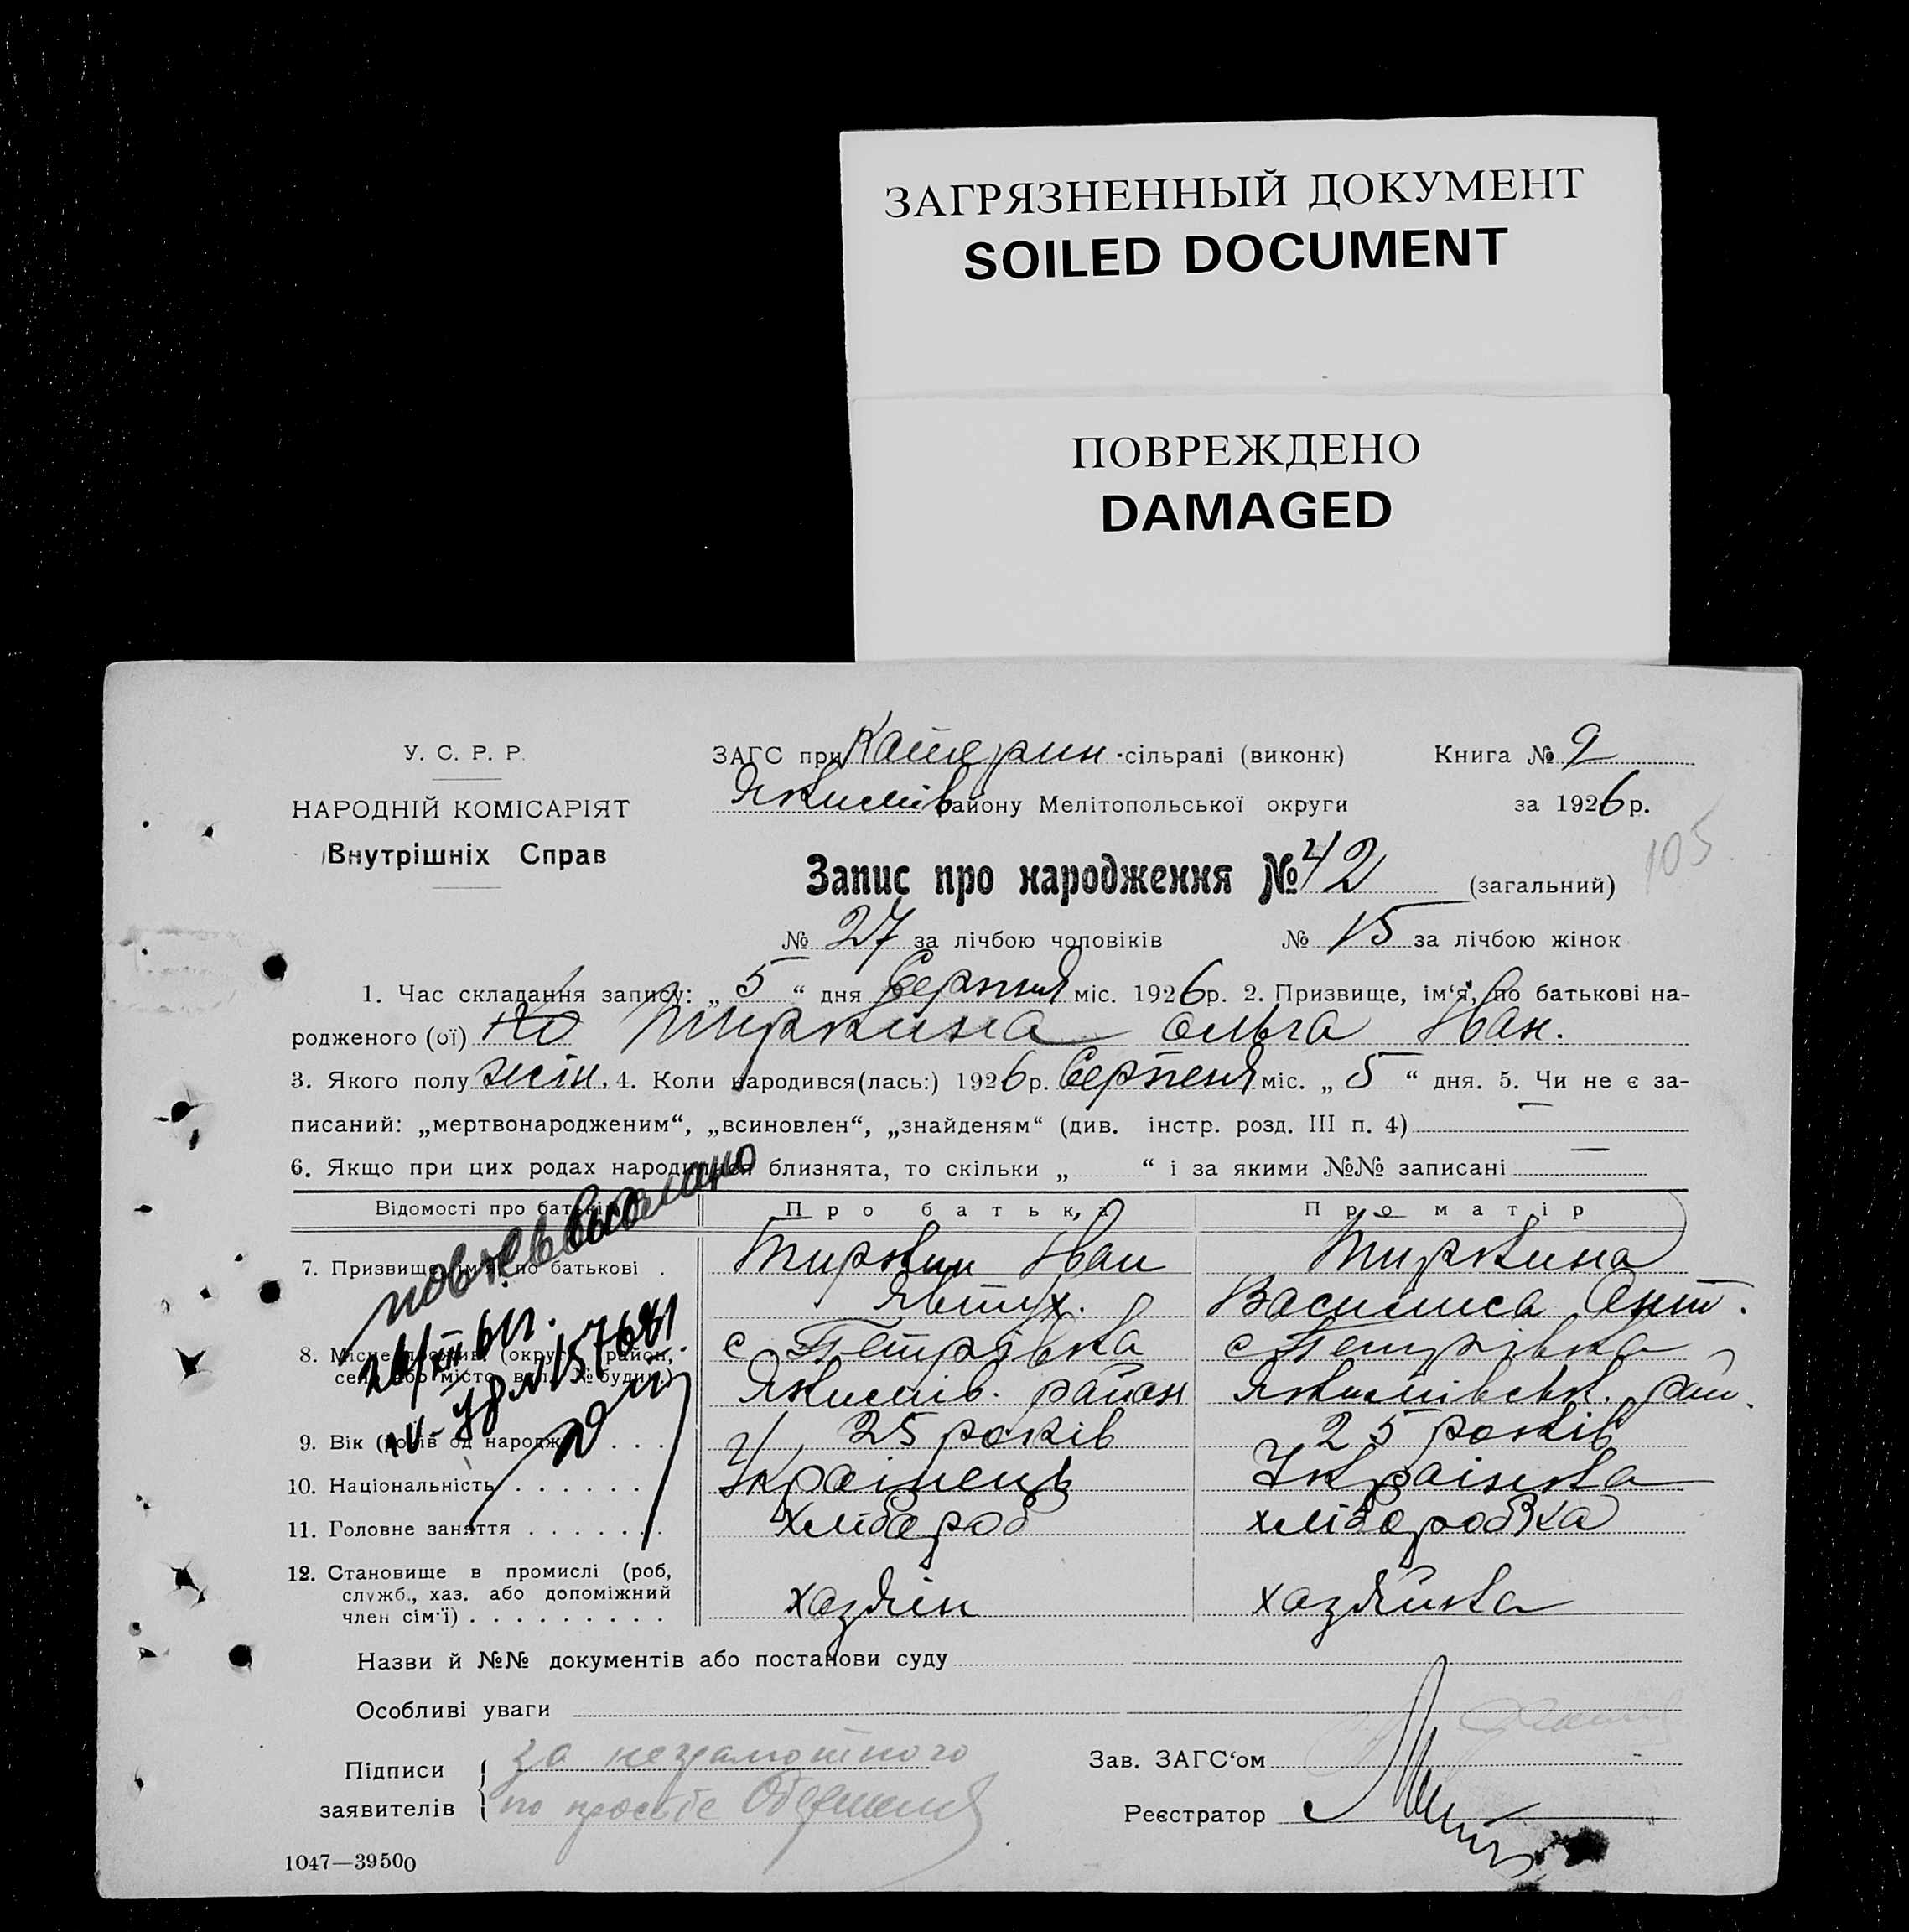 ЗАГРЯЗНЕННЫЙ ДОКУМЕНТ
SOILED DOCUMENT
ПОВРЕЖДЕНО
DAMAGED
У. С. Р. Р.
НАРОДНІЙ КОМІСАРІЯТ
Внутрішніх Справ
ЗАГС при Катерин. сільраді (виконк) Книга № 2
Якимів району Мелітопольської округи за 1926 р.
105
Запис про народження № 42 (загальний)
№ 27 за лічбою чоловіків № 15 за лічбою жінок
1. Час складання запису: „ 5 “ дня Серпня міс. 1926 р. 2. Призвище, ім'я, по батькові на-
родженого (ої) Тиркина Ольга Иван.
3. Якого полу жін. 4. Коли народився(лась:) 1926 р. Серпеня міс. „ 5 “ дня. 5. Чи не є за-
писаний: „мертвонародженим“, „всиновлен“, „знайденям“ (див. інстр. розд. III п. 4) —
6. Якщо при цих родах народилися близнята, то скільки „ “ і за якими №№ записані —
Відомості про батьків Про батька Про матір
7. Призвище, ім'я, по батькові . Тиркин Иван Тиркина
Явтух. Василиса Ант.
8. Місце прожив. (округ, район, с Петрівка с Петрівка
село або місто, вул. № будин.) Якимів. район Якимівськ. рай.
9. Вік (років од народж.) . . . 25 років 25 років
10. Національність . . . . . . Українець Українка
11. Головне заняття . . . . . . . хлібороб хліборобка
12. Становище в промислі (роб,
служб., хаз. або допоміжний
член сім'ї) . . . . . . . . . хазяін хазяйка
повт. выслано
26/XII 61г.
Назви й №№ документів або постанови суду
Особливі уваги
Підписи за незгамотного Зав. ЗАГС'ом
заявителів по просьбе Реєстратор
1047—39500